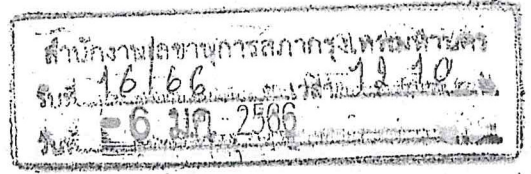 สำนักงานเลขานุการสภากรุงเทพมหานคร
รับที่ 16/66 เวลา 12.10
วันที่ - 6 ม.ค. 2566